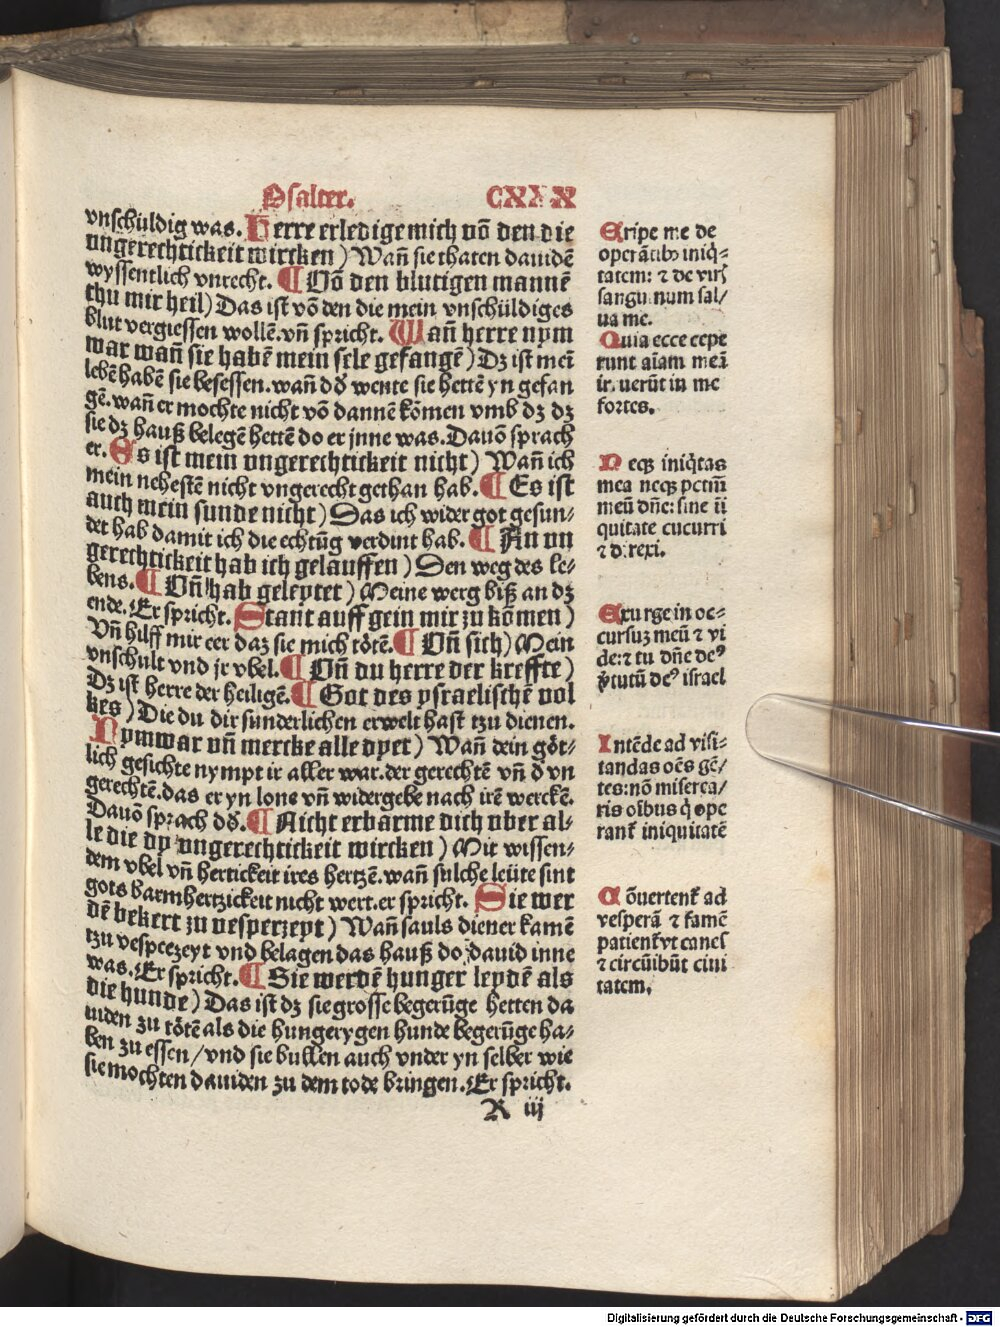 Psalter. CXXX
vnschuldig was. Herre erledige mich võ den die
vngerechtickeit wircken) Wañ sie thaten dauidē
wyssentlich vnrecht. ¶ Võ den blutigen mannē
thu mir heil) Das ist võ den die mein vnschüldiges
blut vergiessen wollē. vñ spricht. Wañ herre nym
war wañ sie habē mein sele gefangē) Dz ist meī
lebē habē sie besessen. wañ dō wente sie hettē yn gefan
gē. wañ er mochte nicht võ dannē kõmen vmb dz dz
sie dz hauß belegē hettē do er jnne was. Dauõ sprach
er. Es ist mein vngerechtickeit nicht) Wañ ich
mein nehestē nicht vngerecht gethan hab. ¶ Es ist
auch mein sunde nicht) Das ich wider got gesun⸗
det hab damit ich die echtūg verdint hab. ¶ An vn
gerechtickeit hab ich gelauffen) Den weg des le⸗
bens. ¶ Vñ hab geleytet) Meine werg biß an dz
ende. Er spricht. Stant auff gein mir zu kõmen)
Vñ hilff mir eer daz sie mich tötē. ¶ Vñ sich) Mein
vnschult vnd jr vbel. ¶ Vñ du herre der kreffte)
Dz ist herre der heiligē. ¶ Got des ysraelischē vol
kes) Die du dir sunderlichen erwelt hast tzu dienen.
Nymwar vñ mercke alle dyet) Wañ dein göt⸗
lich gesichte nympt ir aller war. der gerechtē vñ d̄ vn
gerechtē. das er yn lone vñ widergebe nach irē werckē.
Dauõ sprach dō. ¶ Nicht erbarme dich vber al⸗
le die dy vngerechtickeit wircken) Mit wissen⸗
dem vbel vñ hertickeit ires hertzē. wañ sulche leüte sint
gots barmhertzickeit nicht wert. er spricht. Sie wer
dē bekert zu vesperzeyt) Wañ sauls diener kamē
tzu vesperzeyt vnd belagen das hauß do dauid inne
was. Er spricht. ¶ Sie werdē hunger leydē als
die hunde) Das ist dz sie grosse begerūge hetten da
uiden zu tötē als die hungerygen hunde begerūge ha⸗
ben zu essen/vnd sie bullen auch vnder yn selber wie
sie mochten dauiden zu dem tode bringen. Er spricht.
R iij
Eripe me de
operātibꝰ iniq̄⸗
tatem: ⁊ de viris
sanguinum sal/
ua me.
Quia ecce cepe
runt aīam meā
irruerūt in me
fortes.
Neqꝫ iniq̄tas
mea neqꝫ pctm̄
meū dñe: sine ī
quitate cucurri
⁊ direxi.
Exurge in oc⸗
cursuz meū ⁊ vi
de: ⁊ tu dñe deꝰ
v̓tutū deꝰ israel
Intēde ad visi⸗
tandas oēs gē/
tes: nõ miserea/
ris oībus q̄ ope
rant̄ iniquitatē
Cõuertent̄ ad
vesperā ⁊ famē
patient̄ vt canes
⁊ circūibūt ciui
tatem.
Digitalisierung gefördert durch die Deutsche Forschungsgemeinschaft - DFG